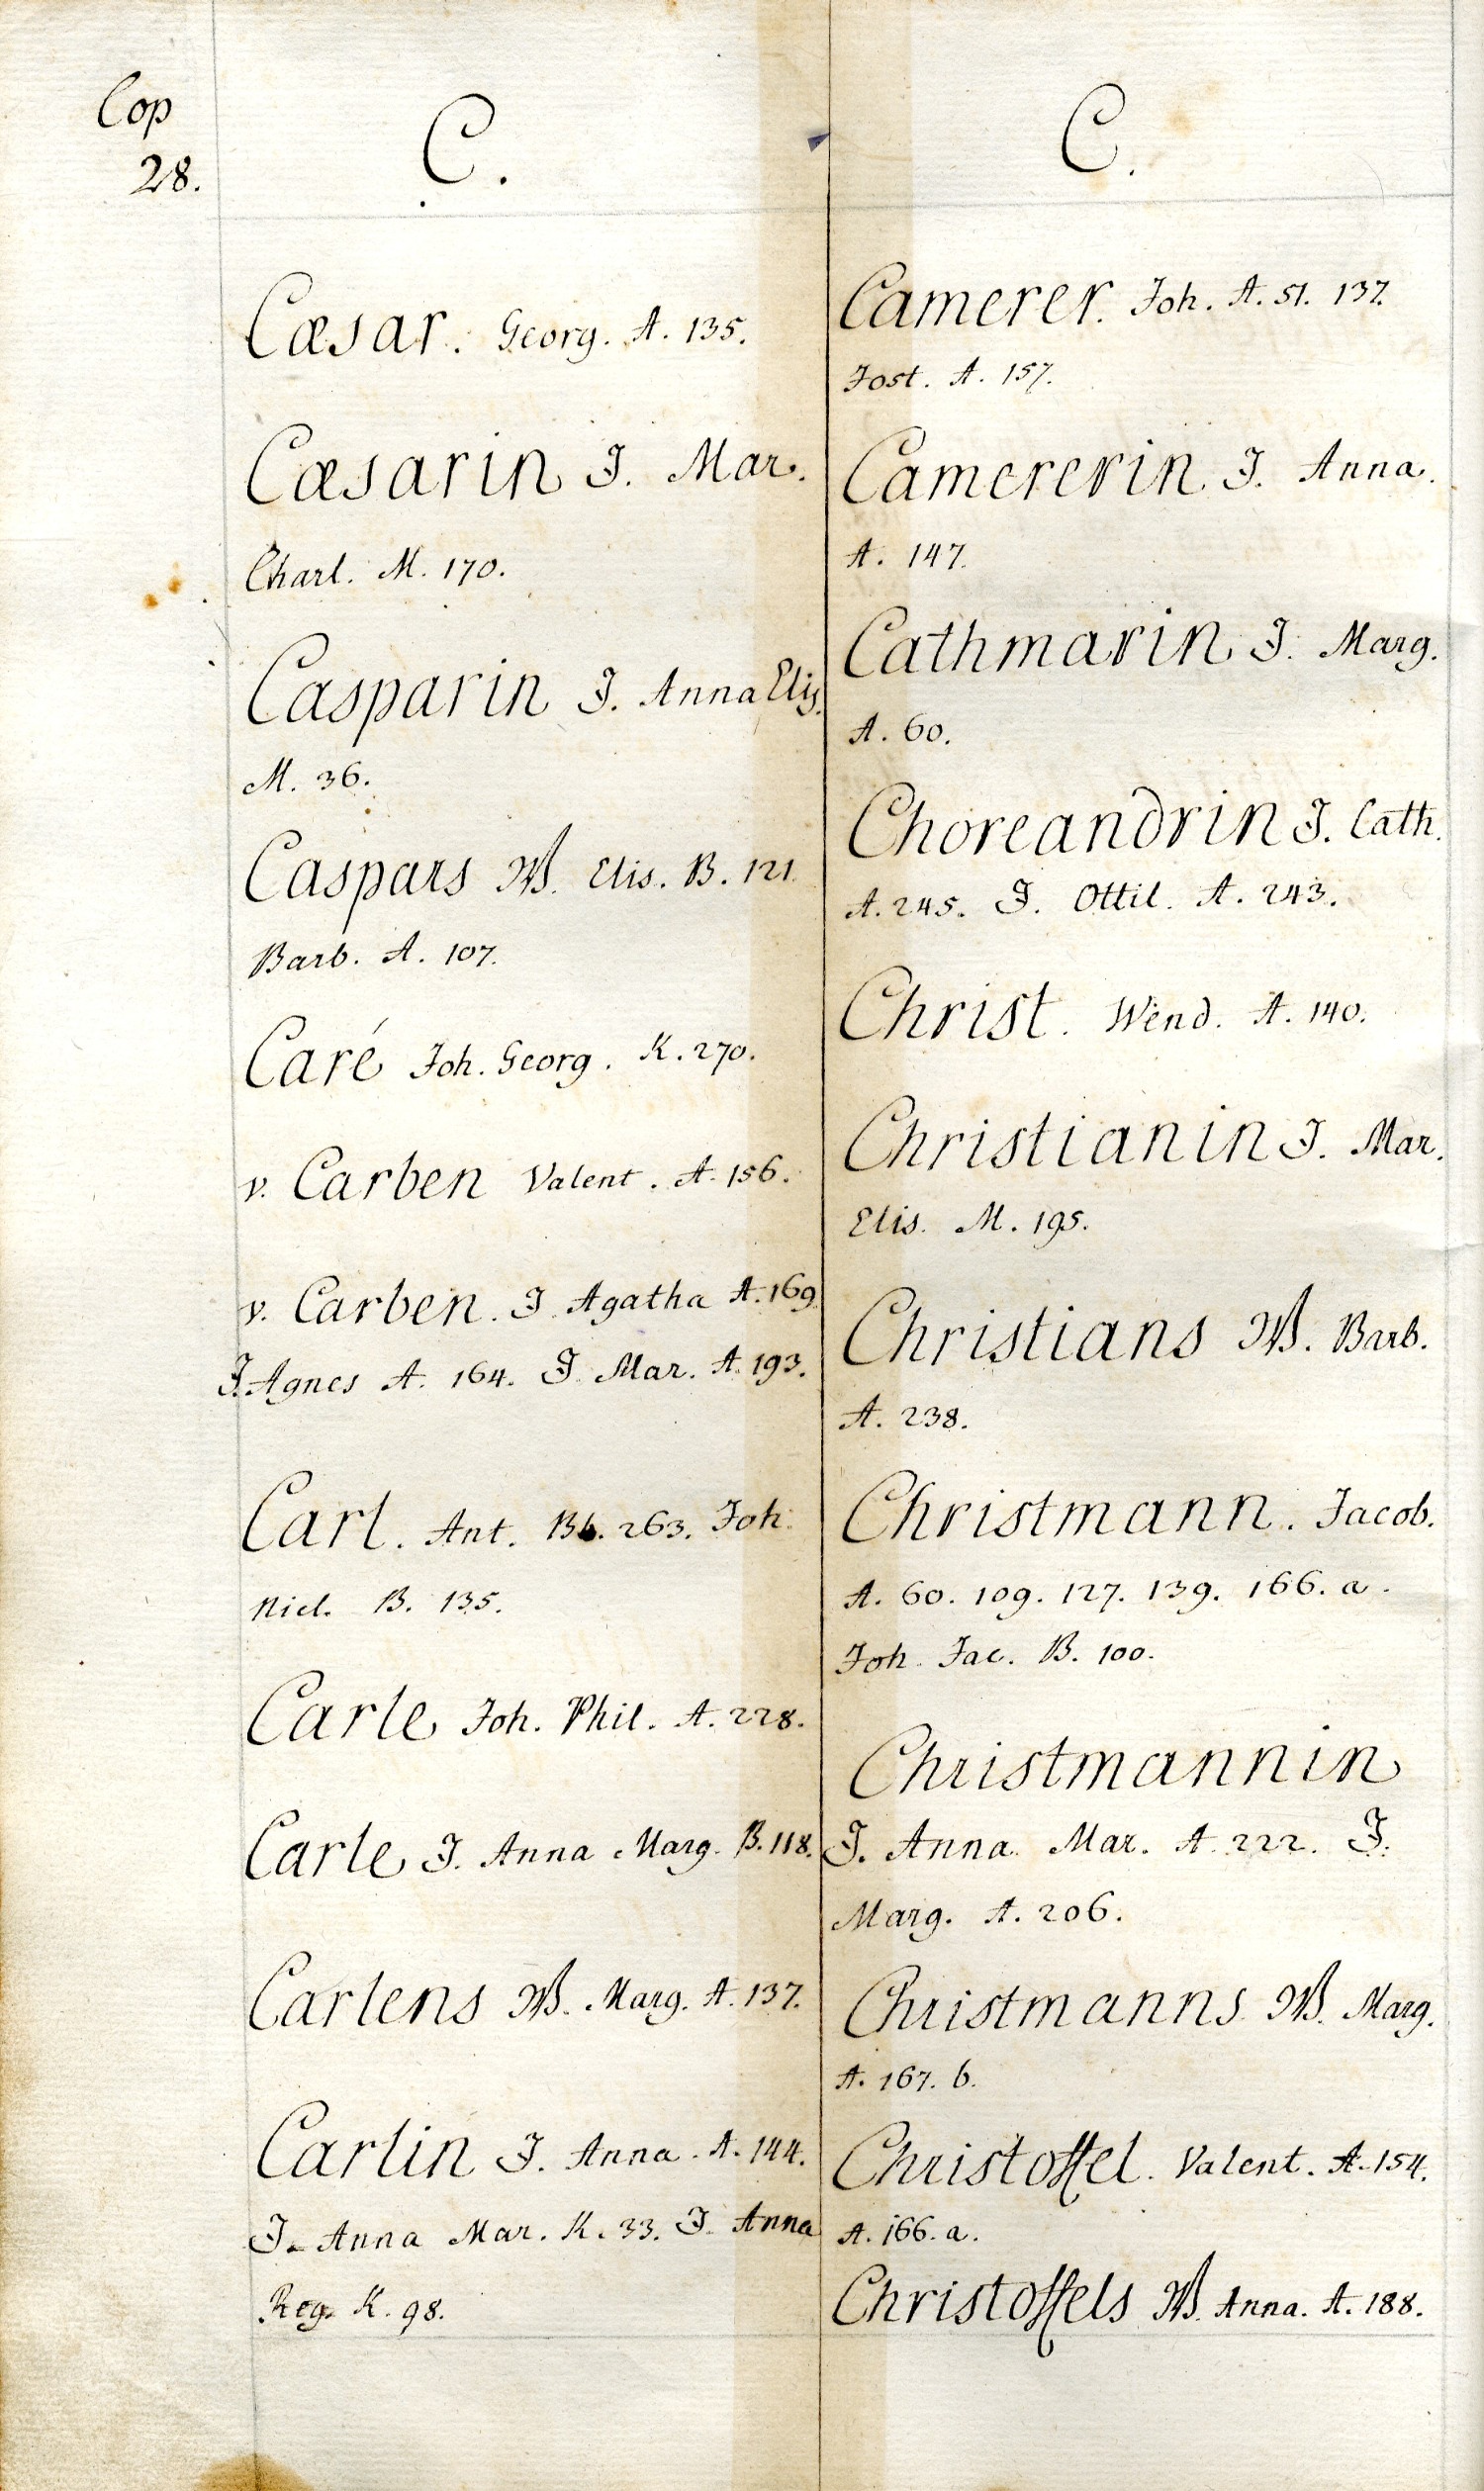 Cop
28.
C.
Cæsar. Georg. A. 135.
Cæsarin J. Mar.
Charl. M. 170.
Casparin J. Anna Elis.
M. 36.
Caspars W. Elis. B. 121.
Barb. A. 107.
Caré Joh. Georg. K. 270.
v. Carben Valent. A. 156.
v. Carben. J. Agatha A. 169.
J. Agnes A. 164. J. Mar. A. 193.
Carl. Ant. B. 263. Joh.
Nicl. B. 135.
Carle Joh. Phil. A. 228.
Carle J. Anna Marg. B. 118.
Carlens W. Marg. A. 137.
Carlin J. Anna. A. 144.
J. Anna Mar. K. 33. J. Anna
Reg. K. 98.
C.
Camerer. Joh. A. 51. 137.
Jost. A. 157.
Camererin J. Anna.
A. 147.
Cathmarin J. Marg.
A. 60.
Choreandrin J. Cath.
A. 245. J. Ottil. A. 243.
Christ. Wend. A. 140.
Christianin J. Mar.
Elis. M. 195.
Christians W. Barb.
A. 238.
Christmann. Jacob.
A. 60. 109. 127. 139. 166. a.
Joh. Jac. B. 100.
Christmannin
J. Anna Mar. A. 222. J.
Marg. A. 206.
Christmanns W. Marg.
A. 167. b.
Christoffel. Valent. A. 154.
A. 166. a.
Christoffels W. Anna. A. 188.